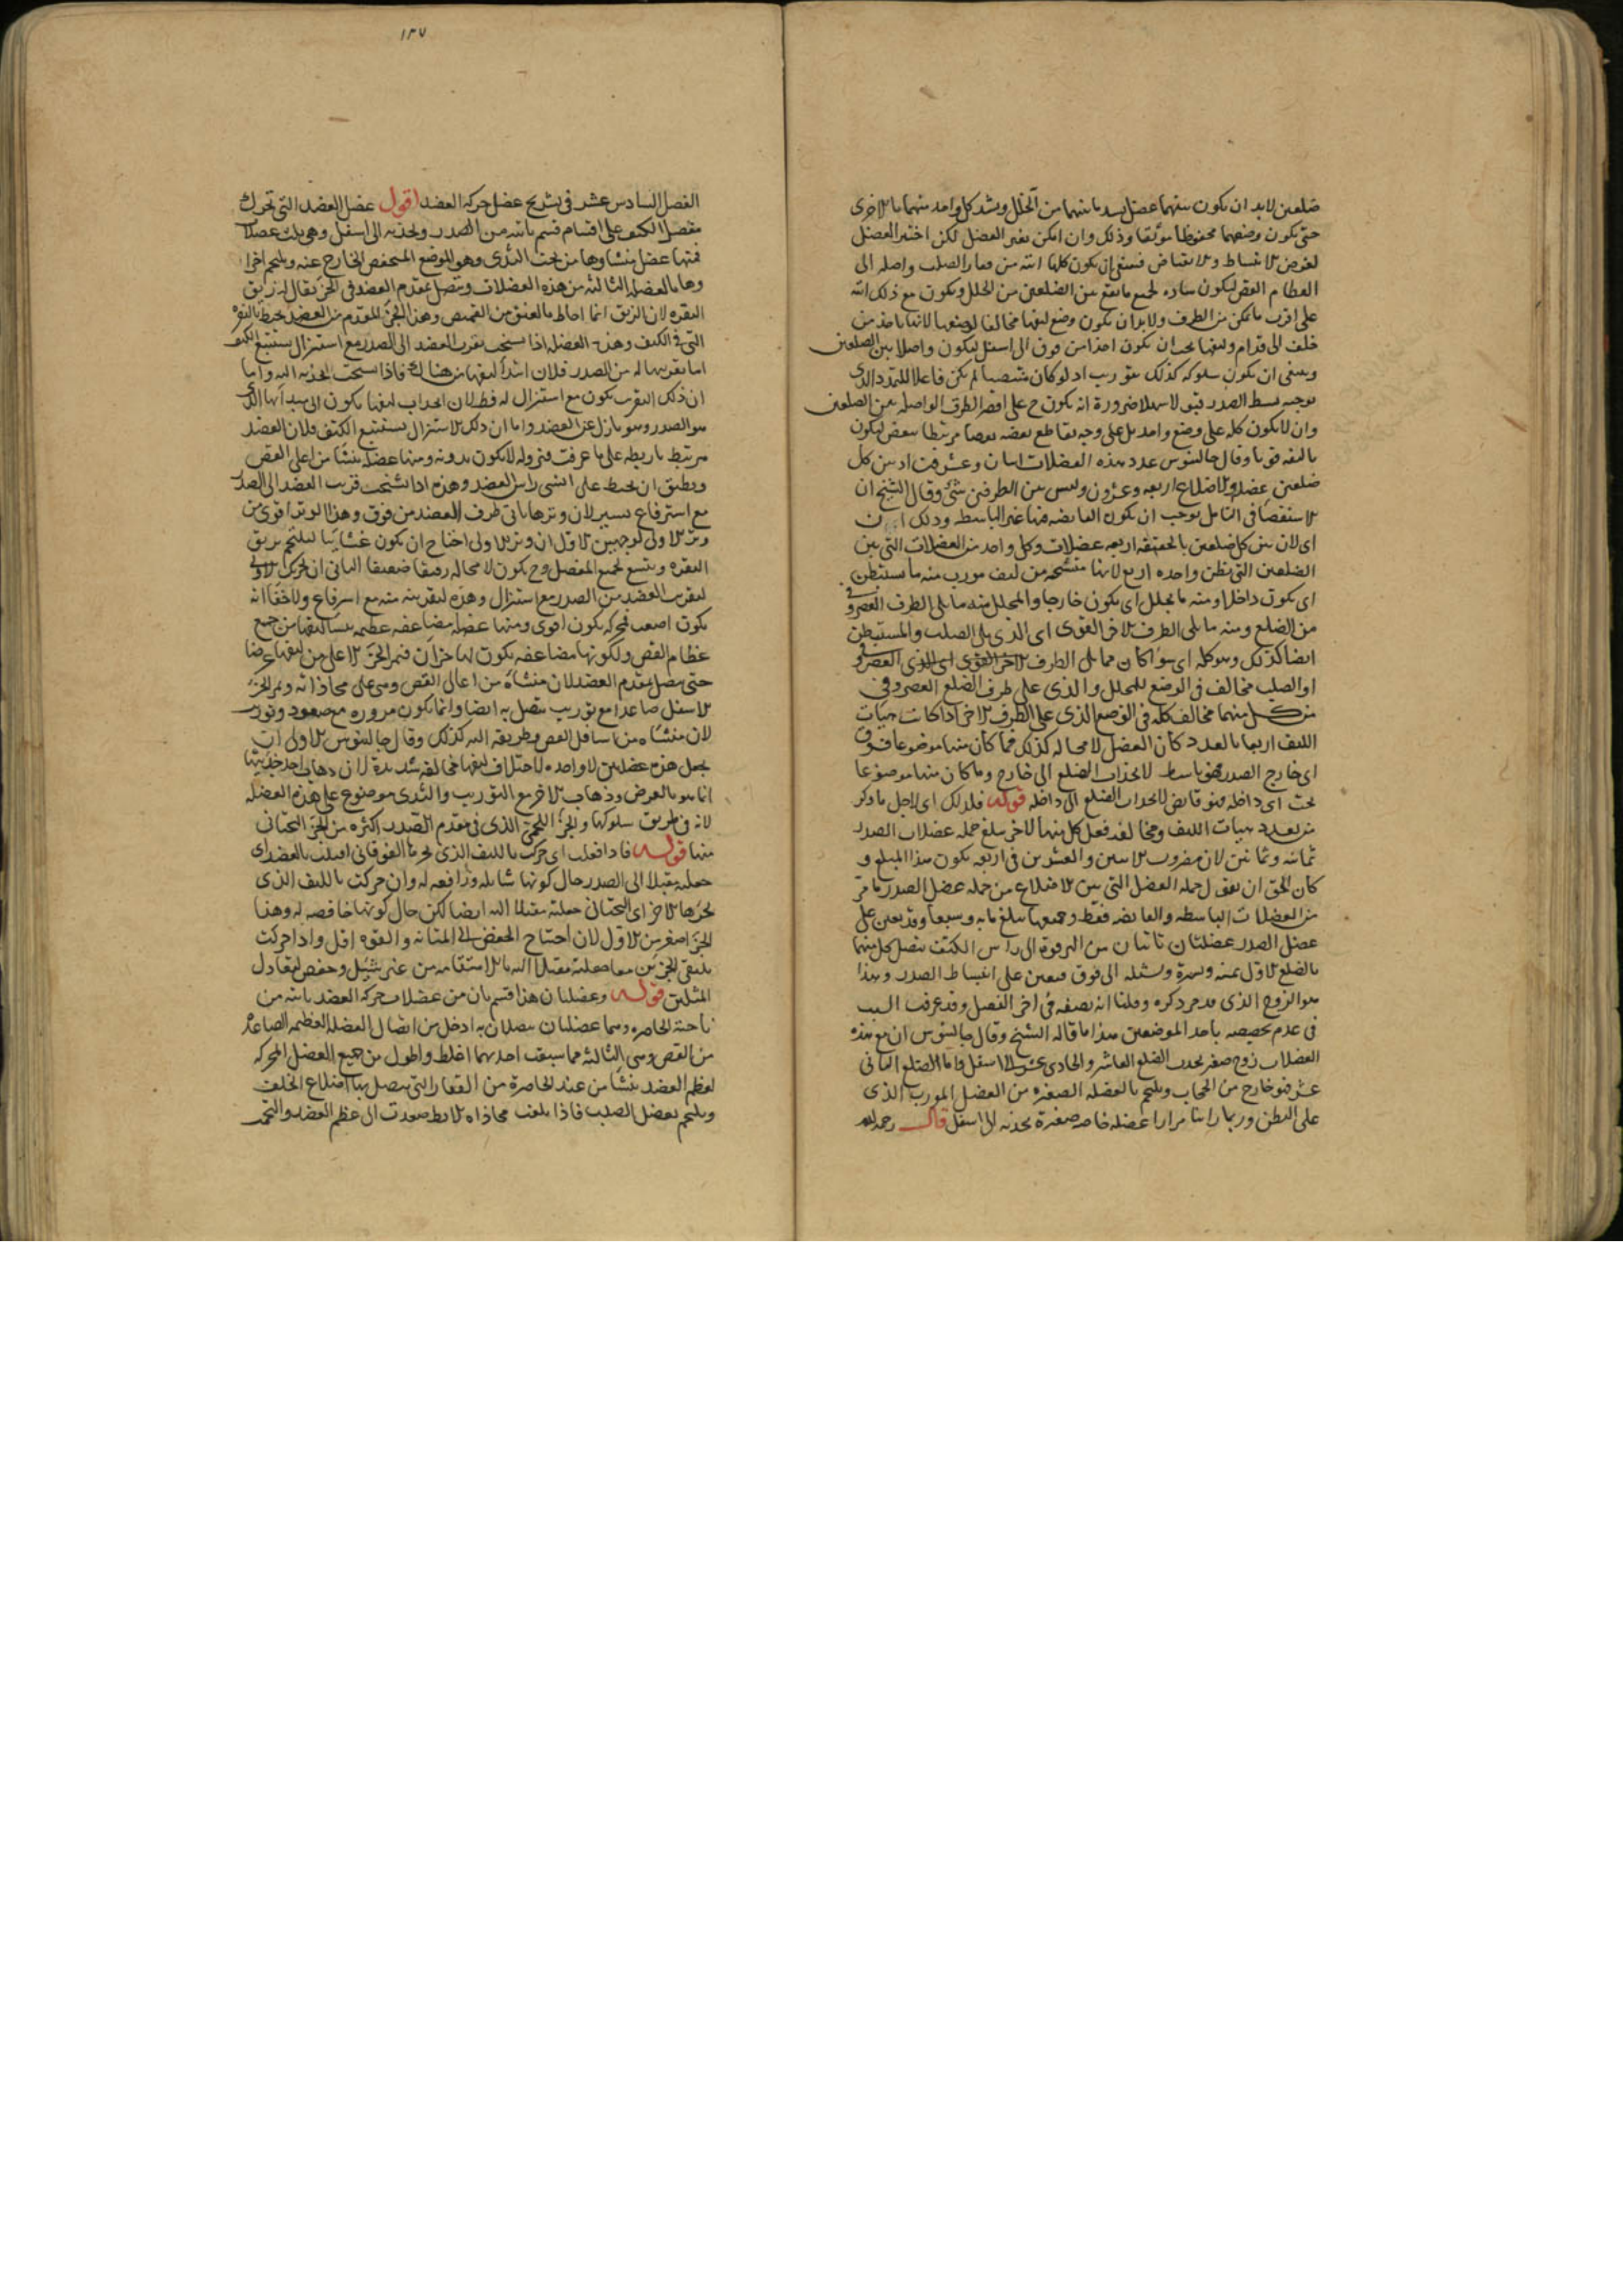 ضلعين لابد ان يكون بينهما عضل يسد ما بينهما من الخلل ويشد كل واحد منهما بالاخرى
حتى يكون وضعهما محفوظا موثقا وذلك وان امكن بغير العضل لكن اختير العضل
لغرض الانبساط والانقباض فينبغى ان يكون كلها اتيه من فقار الصلب واصله الى
العظام القص ليكون ساده لجميع ما يقع بين الضلعين من الخلل ويكون مع ذلك اتيه
على اقرب ما يمكن من الطرف ولابد ان يكون وضع ليفها مخالفا لوضعها لانها تاخذ من
خلف الى قدام وليفها يجب ان يكون اخذا من فوق الى اسفل ليكون واصلا بين الضلعين
وينبغى ان يكون سلوكه كذلك بتوريب اذ لو كان منتصبا لم يكن فاعلا للتمدد الذى
يوجبه بسط الصدر قبولا سهلا ضرورة انه يكون ح على اقصر الطرق الواصله بين الضلعين
وان لا يكون كله على وضع واحد بل على وجه يقاطع بعضه بعضا مرتبطا ببعض ليكون
تاليفه قويا وقال جالينوس عدد هذه العضلات اثنان وعشرون اذ بين كل
ضلعين عضله والاضلاع اربعه وعشرون وليس بين الطرفين شئ وقال الشيخ ان
الاستقصا فى التامل يوجب ان يكون القابضه منها غير الباسطه وذلك
اى لان بين كل ضلعين بالحقيقه اربعه عضلات وكل واحد من العضلات التى بين
الضلعين التى تظن واحده اربع لانها منتسجه من ليف مورب منه ما يستبطن
اى يكون داخلا ومنه ما يجلل اى يكون خارجا والمجلل منه ما يلى الطرف الغضروفى
من الضلع ومنه ما يلى الطرف الاخر القوى اى الذى يلى الصلب والمستبطن
ايضا كذلك وهو كله اى سواء كان مما يلى الطرف الاخر القوى اى الذى الغضروفى
او الصلب مخالف فى الوضع للمجلل والذى على طرف الضلع الغضروفى
من كل منهما مخالف كله فى الوضع الذى على الطرف الاخر واذا كانت هيات
الليف اربعا بالعدد كان العضل لا محاله كذلك فما كان منها موضوعا فوق
اى خارج الصدر فهو باسط لانجذاب الضلع الى خارج وما كان منها موضوعا
تحت اى داخله فهو قابض لانجذاب الضلع الى داخله قوله فلذلك اى لاجل ما ذكر
من تعدد هيات الليف ومخالفه فعل كل منها لاخر يبلغ جمله عضلات الصدر
ثمانيه وثمانين لان مضروب الاثنين والعشرين فى اربعه يكون هذا المبلغ و
كان الحق ان يقول جمله العضل التى بين الاضلاع من جمله عضل الصدر ما مر
من العضلات الباسطه والقابضه فقط وجميعها يبلغ مايه وسبعا وقد يعين على
عضل الصدر عضلتان تاتيان من الترقوة الى راس الكتف تتصل كل منهما
بالضلع الاول يمنه ويسرة وتشيله الى فوق فيعين على انبساط الصدر وهذا
هو الزوج الذى قد مر ذكره وقلنا انه يصفه فى اخر الفصل وقد عرفت السبب
فى عدم تخصيصه باحد الموضعين هذا ما قاله الشيخ وقال جالينوس ان مع هذه
العضلات زوج صغير يجذب الضلع العاشر والحادى عشر الى اسفل فاما الضلع الثانى
عشر فهو خارج من الحجاب ويلتحم بالعضله الصغيره من العضل المورب الذى
على البطن وربما راينا مرارا عضله خاصه صغيرة تجذبه الى اسفل قال رحمه الله
١٣٧
الفصل السادس عشر فى تشريح عضل حركه العضد اقول عضل العضد التى تحرك
مفصل الكتف على اقسام قسم ياتيه من الصدر ويجذبه الى اسفل وهى ثلث عضلات
فمنها عضل منشاوها من تحت الثدى وهو الموضع المنخفض الخارج عنه ويلتحم اخرا
وهابالعضله الثالثه من هذه العضلات ويتصل بمقدم العضد فى الجزء يقال له زيق
النقره لان الزيق انما احاط بالعنق من القميص وهذا الجزء المقدم من العضد يحيط بالنقره
التى فى الكتف وهذه العضله اذا تشنجت يقرب العضد الى الصدر مع استنزال يستتبع الكتف
اما تقريبها له من الصدر فلان ابتدا ليفها من هناك فاذا تشنجت انجذب اليه واما
ان ذلك التقريب يكون مع استنزال له فظ لان انجذاب ليفها يكون الى مبداها الذى
هو الصدر وهو نازل عن العضد واما ان ذلك الاستنزال يستتبع الكتف فلان العضد
مرتبط باربطه على ما عرفت فنزوله لا يكون بدونه ومنها عضله ينشا من اعلى القص
ويطيق ان يحيط على انسى راس العضد وهذه اذا تشنجت قربت العضد الى الصدر
مع استرفاع يسير لان وترها ياتى طرف العضد من فوق وهذا الوتر اقوى من
وتر الاولى لوجهين الاول ان وتر الاولى احتاج ان يكون غشائيا ليلتحم بزيق
النقره ويتسع لجميع المفصل وح يكون لا محاله رقيقا ضعيفا الثانى ان تحريك الاولى
لتقريب العضد من الصدر مع استنزال وهذه لتقريبه منه مع استرفاع ولا خفا انه
يكون اصعب فمحركه يكون اقوى ومنها عضله مضاعفه عظيمه ينشا ليفها من جميع
عظام القص ولكونها مضاعفه يكون لها جزان فيمر الجزء الاعلى من ليفها عرضا
حتى يتصل بمقدم العضد لان منشاه من اعالى القص وهى على محاذاته ويمر الجزء
الاسفل صاعدا مع توريب يتصل به ايضا وانما يكون مروره مع صعود وتوريب
لان منشاه من اسافل القص وطريقه اليه كذلك وقال جالينوس الاولى ان
يجعل هذه عضلتين لا واحده لاختلاف ليفها مخالفه شديدة لان ذهاب احد جزئيها
انما هو بالعرض وذهاب الاخر مع التوريب والثدى موضوع على هذه العضله
لانه فى طريق سلوكها والجزء اللحمى الذى فى مقدم الصدر اكثره من الجزء التحتانى
منها قوله فاذا فعلت اى حركت بالليف الذى لجزءها الفوقانى اقبلت بالعضد اى
جعلته مقبلا الى الصدر حال كونها شايله ورافعه له وان حركت بالليف الذى
لجزءها الاخر اى التحتانى جعلته مقبلا اليه ايضا لكن حال كونها خافضه له وهذا
الجزء اصغر من الاول لان احتياج الخفض الى المتانه والقوه اقل واذا حركت
بليفى الجزئين معا جعلته مقبلا اليه بالاستقامه من غير شيل وخفض لتعادل
المثلين قوله وعضلتان هذا قسم ثان من عضلات حركه العضد ياتيه من
ناحية الخاصره وهما عضلتان يتصلان به ادخل من اتصال العضله العظيمه الصاعده
من القص وهى الثالثه مما سبقت احديهما اغلظ واطول من جميع العضل المحركه
لعظم العضد ينشا من عند الخاصرة من الفقار التى يتصل بها اضلاع الخلف
ويلتحم بعضل الصلب فاذا بلغت محاذاه الابط صعدت الى عظم العضد والتحمت